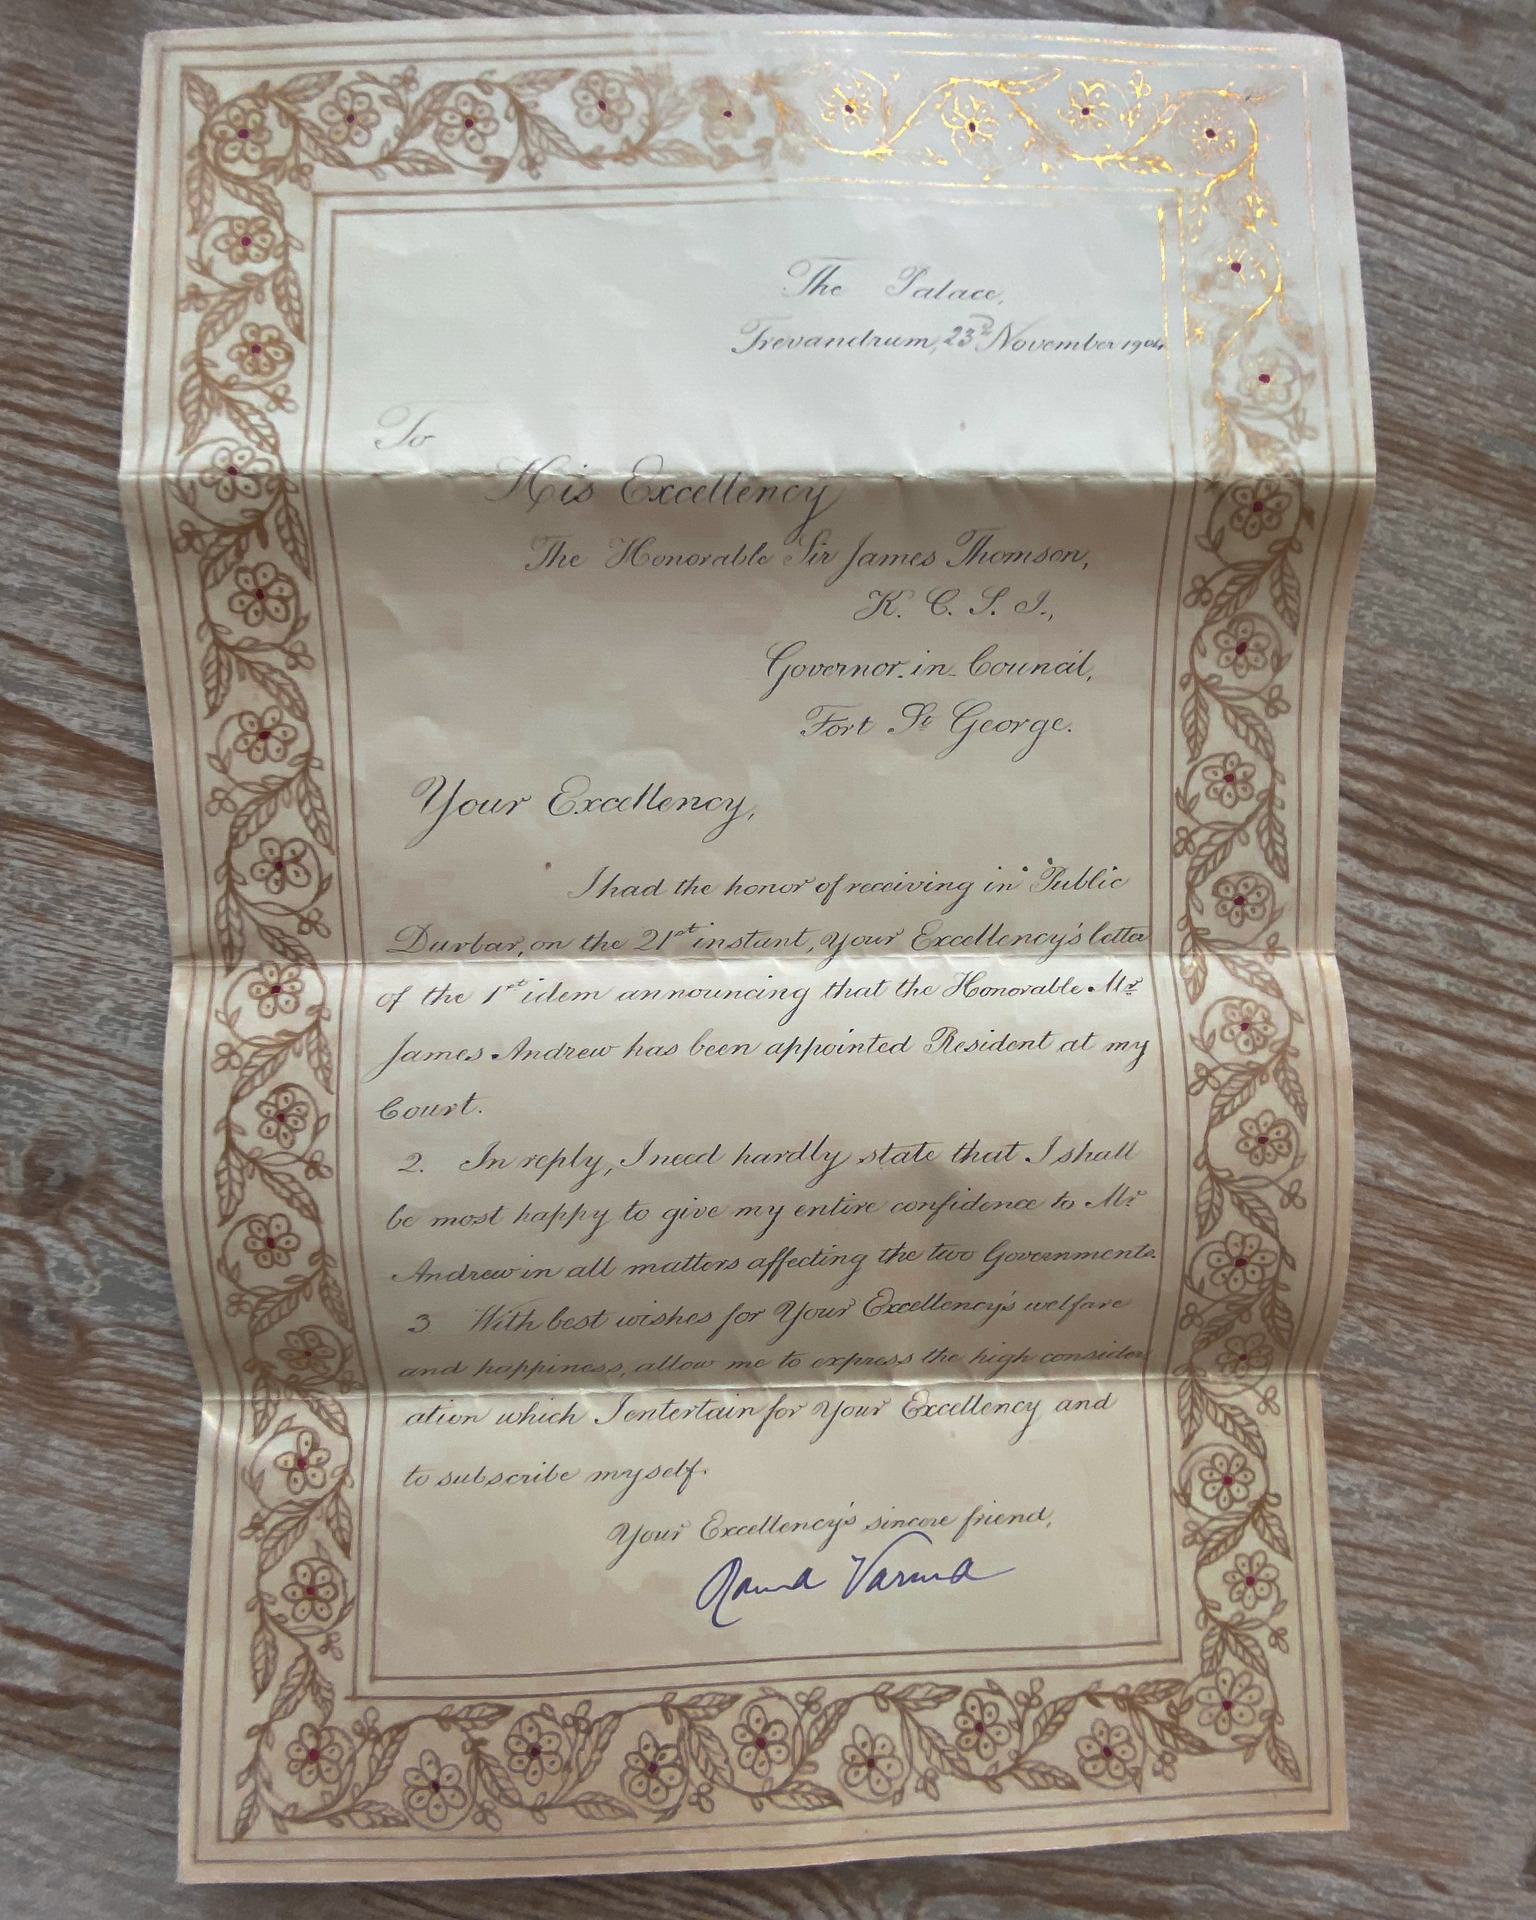 The Palace,
Trevandrum, 23rd November 1904
To
His Excellency
The Honorable Sir James Thomson,
K. C. S. I.,
Governor-in-Council,
Fort St George.
Your Excellency,
I had the honor of receiving in Public
Durbar, on the 21st instant, Your Excellency's letter
of the 1st idem announcing that the Honorable Mr
James Andrew has been appointed Resident at my
Court.
2. In reply, I need hardly state that I shall
be most happy to give my entire confidence to Mr
Andrew in all matters affecting the two Governments.
3 With best wishes for Your Excellency's welfare
and happiness, allow me to express the high consider
ation which I entertain for Your Excellency and
to subscribe myself.
Your Excellency's sincere friend,
Rama Varma